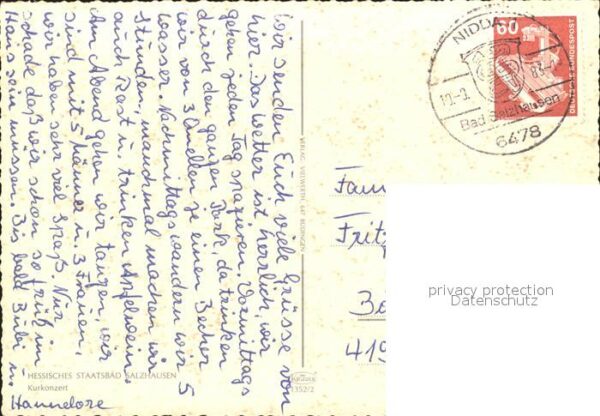 Wir senden Euch viele Grüsse von
hier. Das Wetter ist herrlich, wir
gehen jeden Tag spazieren. Vormittags
durch den ganzen Park, da trinken
wir von 3 Quellen je einen Becher
Wasser. Nachmittags wandern wir 5
Stunden, manchmal machen wir
auch Rast u. trinken Apfelwein.
Am Abend gehen wir tanzen, wir
sind mit 5 Männer u. 3 Frauen,
wir haben sehr viel Spaß. Nur
schade daß wir schon so früh im
Haus sein müssen. Bis bald Bubi u.
Hannelore
HESSISCHES STAATSBAD SALZHAUSEN
Kurkonzert
VERLAG VOLWERTH 647 BÜDINGEN
1352/2
NIDDA
Bad Salzhausen
6478
60
DEUTSCHE BUNDESPOST
Fam
Fritz
Be
419
privacy protection
Datenschutz